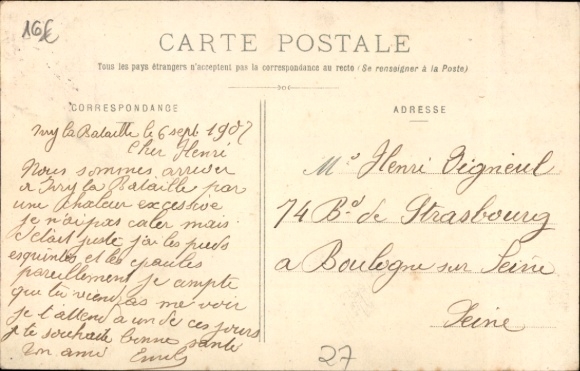 16€
CARTE POSTALE
Tous les pays étrangers n'acceptent pas la correspondance au recto (Se renseigner à la Poste)
CORRESPONDANCE
Ivry la Bataille le 6 sept 1907
Cher Henri
Nous sommes arriver
a Ivry la Bataille par
une chaleur excessive
je n'ai pas caler mais
s'était juste j'ai les pieds
esquintés et les épaules
pareillement je compte
que tu viendras me voir
je t'attend a un de ces jours
je te souhaite bonne santé
ton ami
ADRESSE
Mr Henri Vigneul
74 Bd de Strasbourg
a Boulogne sur Seine
Seine
27